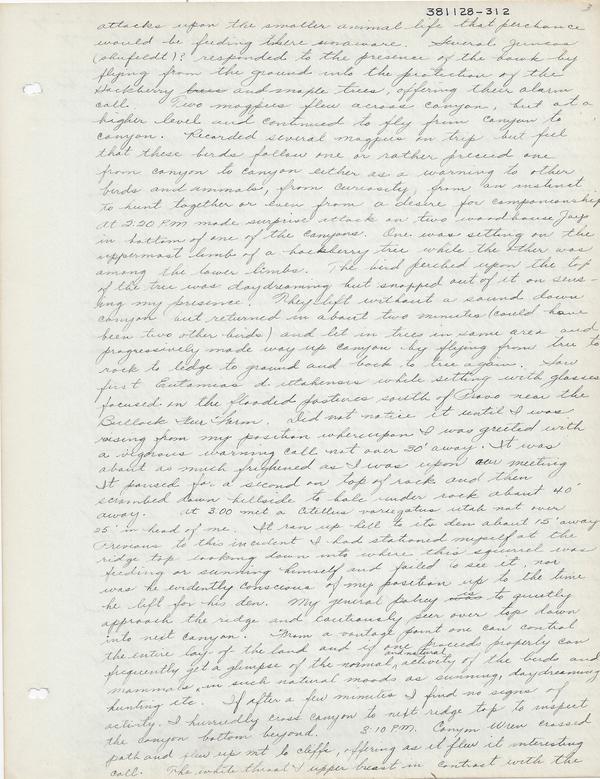 381128-312
3
attacks upon the smaller animal life that perchance
would be feeding there unaware. Several Juncos
(shufeldti)? responded to the presence of the hawk by
flying from the ground into the protection of the
Hackberry trees and maple trees, offering their alarm
call. Two magpies flew across canyon, but at a
higher level and continued to fly from canyon to
canyon. Recorded several magpies on trip but feel
that these birds follow one or rather preceed one
from canyon to canyon either as a warning to other
birds and animals, from curiosity, from an instinct
to hunt together or even from a desire for companionship
At 2:20 P.M. made surprise attack on two woodhouse Jays
in bottom of one of the canyons. One was setting on the
uppermost limb of a hackberry tree while the other was
among the lower limbs. The bird perched upon the top
of the tree was daydreaming but snapped out of it on sens-
ing my presence. They left without a sound down
canyon but returned in about two minutes (could have
been two other birds) and lit in trees in same area and
progressively made way up canyon by flying from tree to
rock to ledge to ground and back to tree again. Saw
first Eutamias d. utahensis while setting with glasses
focused on the flooded pastures south of Provo near the
Bullock Fur Farm. Did not notice it until I was
rising from my position whereupon I was greeted with
a vigorous warning call not over 30' away. It was
about as much frighened as I was upon our meeting
It paused for a second on top of rock and then
scrambed down hillside to hole under rock about 40'
away. At 3:00 met a Citellus variegatus utah not over
25' in head of me. It ran up hill to its den about 15' away
Previous to this incident I had stationed myself at the
ridge top looking down into where this squirrel was
feeding or sunning himself and failed to see it, nor
was he evidently conscious of my position up to the time
he left for his den. My general policy is to quietly
approach the ridge and cautiously seer over top down
into next canyon. From a vantage point one can control
the entire lay of the land and if one proceeds properly can
frequently get a glimpse of the normal and natural activity of the birds and
mammals, in such natural moods as sunning, daydreaming
hunting etc. If after a few minutes I find no signs of
activity, I hurriedly cross canyon to next ridge top to inspect
the canyon bottom beyond. 3:10 P.M. Canyon Wren crossed
path and flew up mt to cliffs, offering as it flew it interesting
call. The white throat & upper breast in contrast with the